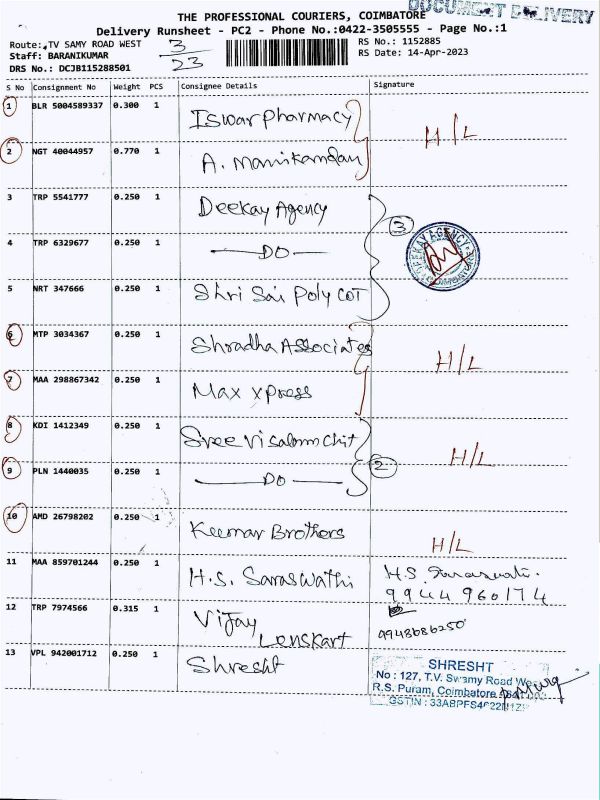 THE PROFESSIONAL COURIERS, COIMBATORE
DOCUMENT DELIVERY
Delivery Runsheet - PC2 - Phone No.:0422-3505555 - Page No.:1
Route: TV SAMY ROAD WEST
3/23
RS No.: 1152885
Staff: BARANIKUMAR
RS Date: 14-Apr-2023
DRS No.: DCJB115288501
S No Consignment No Weight PCS Consignee Details Signature
1 BLR 5004589337 0.300 1 Iswar Pharmacy
H/L
2 NGT 40044957 0.770 1 A. Manikandan
3 TRP 5541777 0.250 1 Deekay Agency
3
DEEKAY AGENCY
COIMBATORE
4 TRP 6329677 0.250 1 — DO —
5 NRT 347666 0.250 1 Shri Sai Poly Cot
6 MTP 3034367 0.250 1 Shradha Associates H/L
7 MAA 298867342 0.250 1 Max xpress
8 KDI 1412349 0.250 1 Sree Visalam Chit
2 H/L
9 PLN 1440035 0.250 1 — DO —
10 AMD 26798202 0.250 1 Kumar Brothers H/L
11 MAA 859701244 0.250 1 H.S. Saraswathi H.S. Saraswati.
9944960174
12 TRP 7974566 0.315 1 Vijay
Lenskart 9948686250
13 VPL 942001712 0.250 1 Shresht
SHRESHT
No : 127, T.V. Swamy Road
R.S. Puram, Coimbatore
GSTIN : 33ABPFS4622